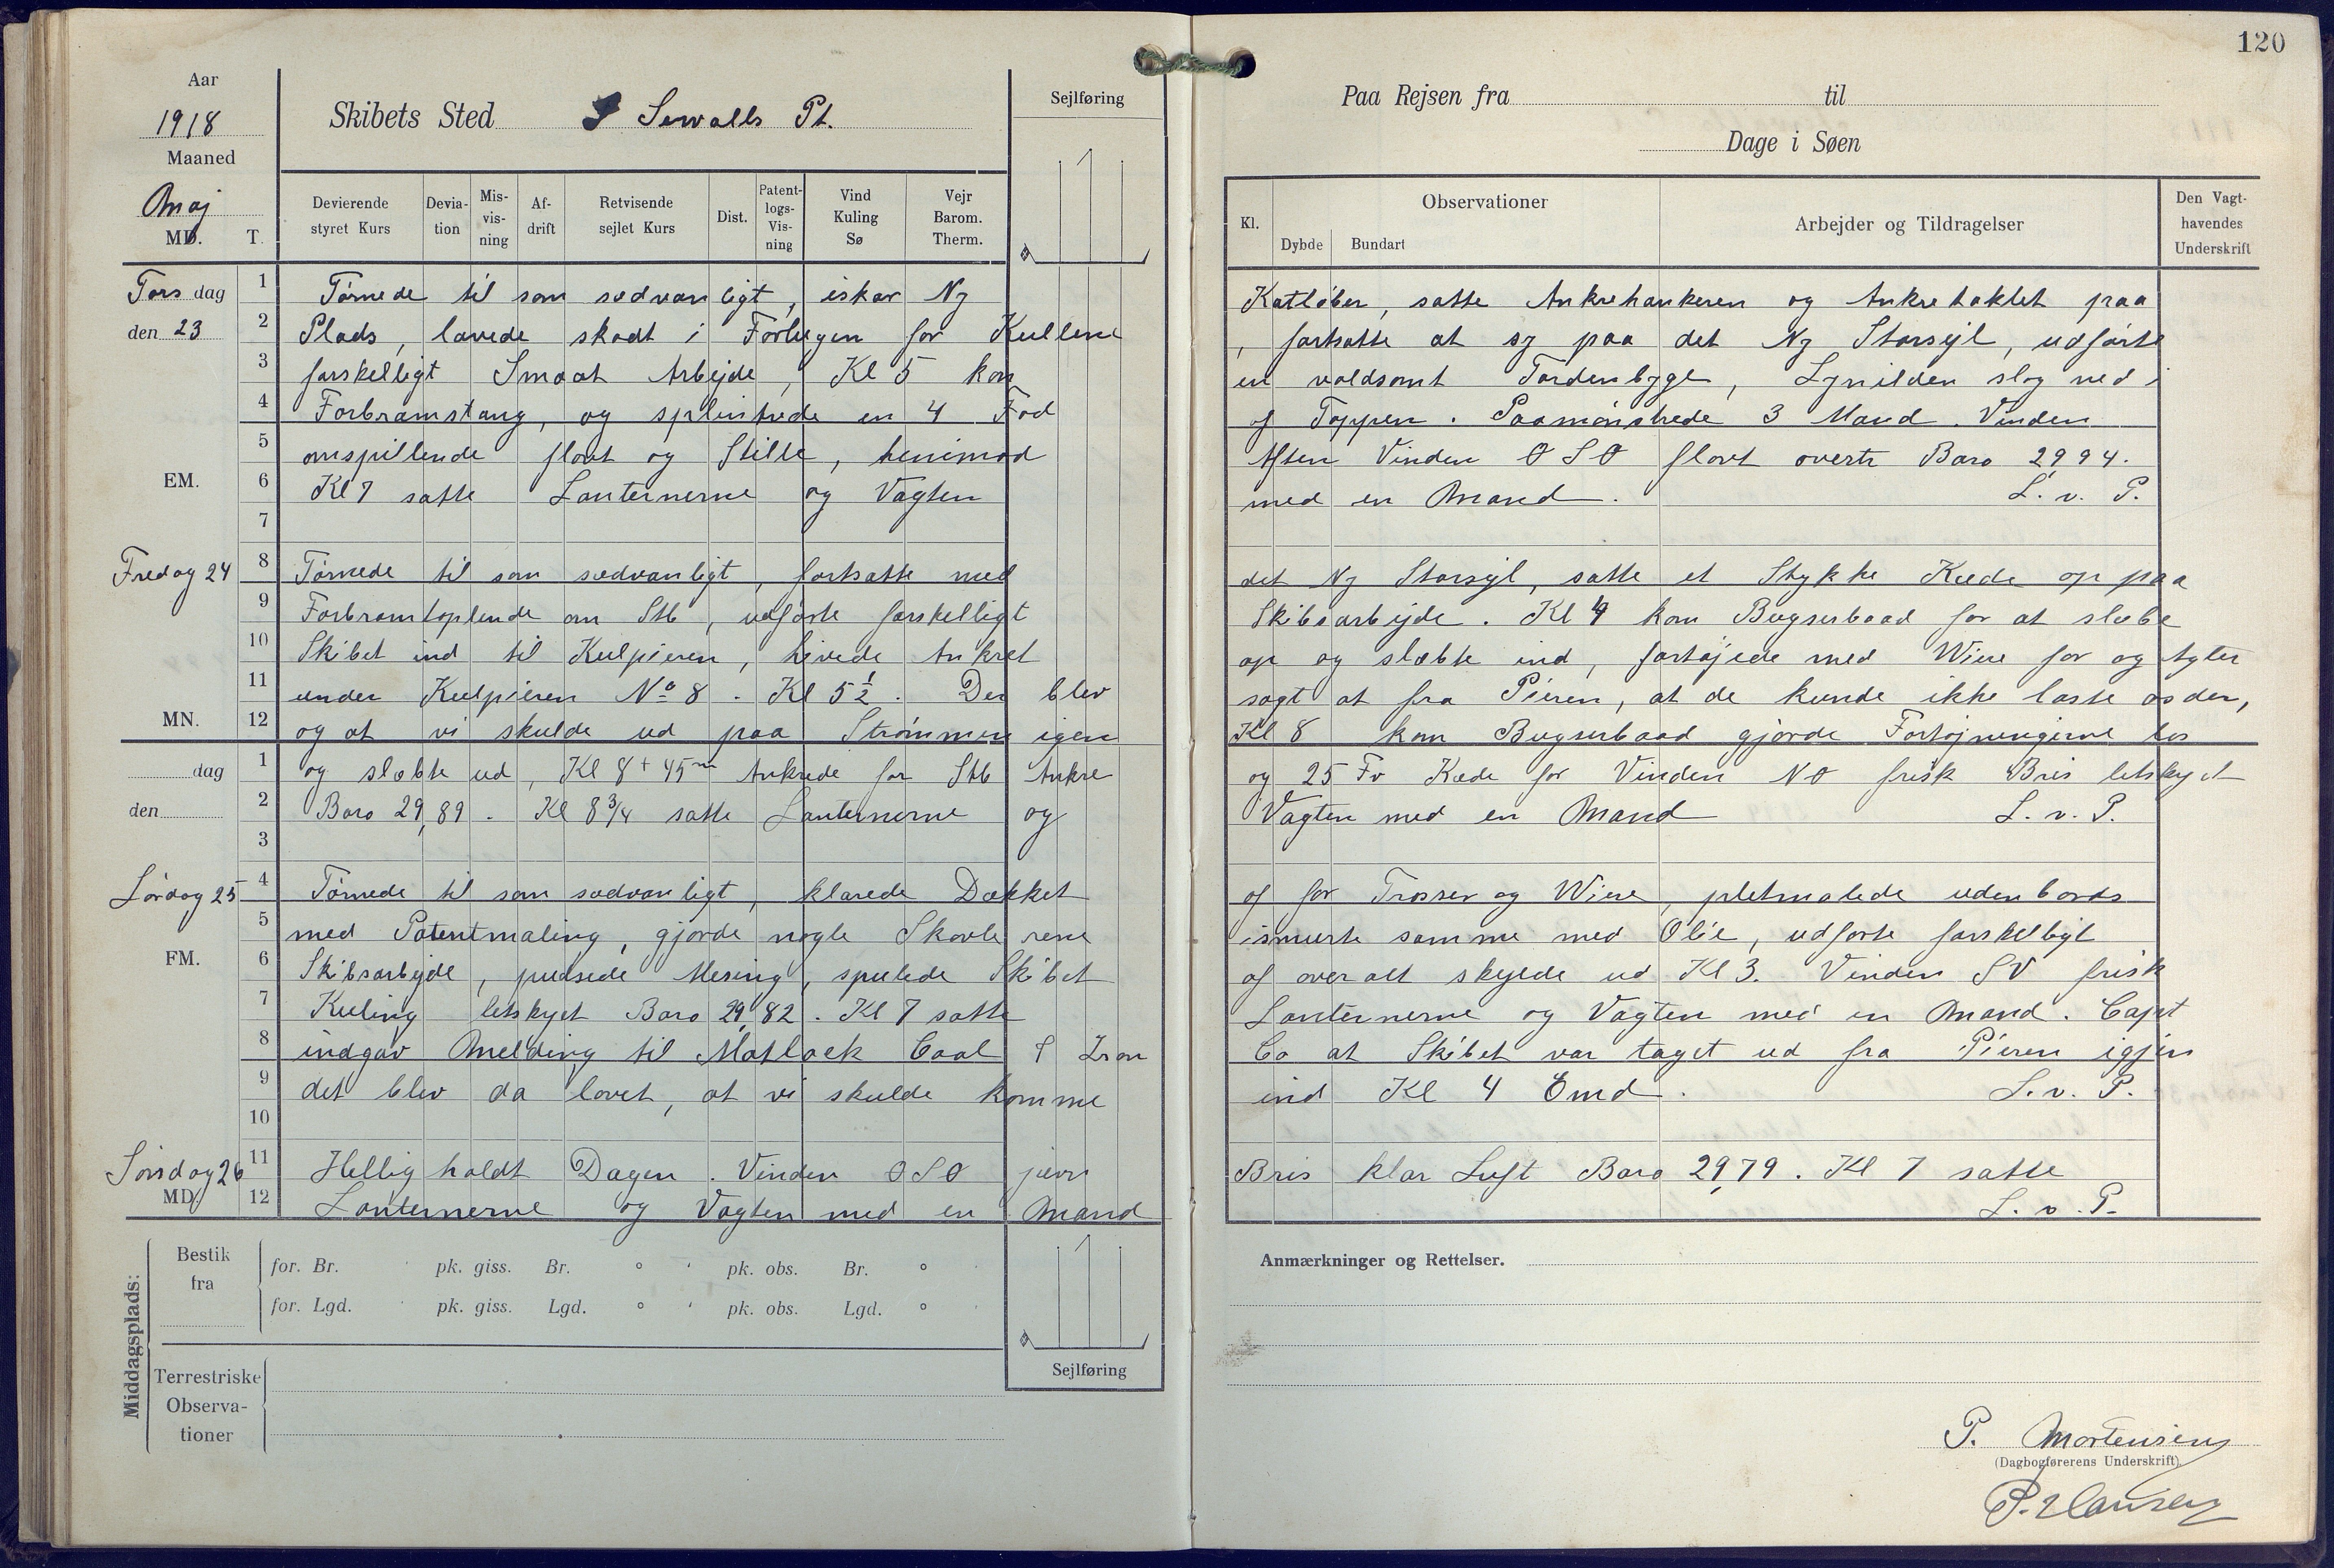 120
Aar
1918
Maaned
Maj
MD. T.
Skibets Sted Sewalls Pt.
Sejlføring
Paa Rejsen fra til
Dage i Søen
Devierende styret Kurs
Devia-tion
Mis-vis-ning
Af-drift
Retvisende sejlet Kurs
Dist.
Patent-logs-Vis-ning
Vind Kuling Sø
Vejr Barom. Therm.
Kl.
Observationer
Dybde Bundart
Arbejder og Tildragelser
Den Vagt-havendes Underskrift
Torsdag 1 Tørnede til som sædvanligt, iskar Ny Katløber, satte Ankrehankeren og Ankretaklet paa
den 23 2 Plads, lavede skodt i Forlugen for Kullene, fortsatte at sy paa det Ny Storsejl, udførte
3 forskelligt Smaat Arbejde, Kl 5 kom en voldsomt Tordenbyge, Lynilden slog ned i
4 Forbramstang, og splintrede en 4 Fod af Toppen. Paamønstrede 3 Mand. Vinden
5 omspillende flovt og Stille, henimod Aften Vinden OSO flovt overtr Baro 29,94.
EM. 6 Kl 7 satte Lanternerne og Vagten med en Mand. L. v. P.
7
Fredag 24 8 Tørnede til som sædvanligt, fortsatte med det Ny Storsejl, satte et Stykke Kæde op paa
9 Forbramtoplende om Stb, udførte forskelligt Skibsarbejde. Kl 4 kom Bugserbaad for at slæbe
10 Skibet ind til Kulpieren, hivede Ankret op og slæbte ind, fortøjede med Wire for og Agter
11 under Kulpieren No 8. Kl 5½. Der blev sagt at fra Pieren, at de kunde ikke laste os der,
MN. 12 og at vi skulde ud paa Strømmen igen Kl 8 kom Bugserbaad gjorde Fortøjningerne los
dag 1 og slæbte ud, Kl 8+45m Ankrede for Stb Ankre og 25 Fv Kæde for Vinden NO frisk Bris letskyet
den 2 Baro 29,89. Kl 8¾ satte Lanternerne og Vagten med en Mand L. v. P.
3
Lørdag 25 4 Tørnede til som sædvanligt, klarede Dækket af for Trosser og Wire, pletmalede udenbords
5 med Patentmaling, gjorde nogle Skovle rene ismurte samme med Olie, udførte forskelligt
FM. 6 Skibsarbejde, pudsede Mesing, spulede Skibet af overalt skyede ud Kl 3. Vinden SV frisk
7 Kuling letskyet Baro 29,82. Kl 7 satte Lanternerne og Vagten med en Mand. Capt
8 indgav Melding til Matlack Coal & Iron Co at Skibet var taget ud fra Pieren igjen
9 det blev da lovet, at vi skulde komme ind Kl 4 Emd. L. v. P.
10
Søndag 26 11 Hellig holdt Dagen. Vinden OSO jævn Bris klar Luft Baro 29,79. Kl 7 satte
MD. 12 Lanternerne og Vagten med en Mand L. v. P.
Middagsplads:
Bestik fra
for. Br. pk. giss. Br. ° ' pk. obs. Br. °
for. Lgd. pk. giss. Lgd. ° ' pk. obs. Lgd. °
Terrestriske Observa-tioner
Sejlføring
Anmærkninger og Rettelser.
P. Mortensen
(Dagbogførerens Underskrift).
P. Hansen